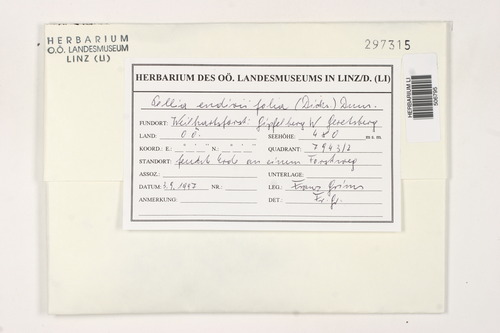 HERBARIUM
O.Ö. LANDESMUSEUM
LINZ (LI)
297315
HERBARIUM LI
506795
HERBARIUM DES OÖ. LANDESMUSEUMS IN LINZ/D. (LI)
Pellia endiviifolia (Dicks.) Dum.
FUNDORT: Weilhartsforst: Gipfelberg W
LAND: OÖ. SEEHÖHE: 480 m s. m.
KOORD.: E.: ° ' " N.: ° ' " QUADRANT: 7943/2
STANDORT: feuchte Erde an einem Forstweg
ASSOZ.: UNTERLAGE:
DATUM: 3.9.1987 NR.: LEG.: Franz Grims
ANMERKUNG: DET.: Fr. Gr.